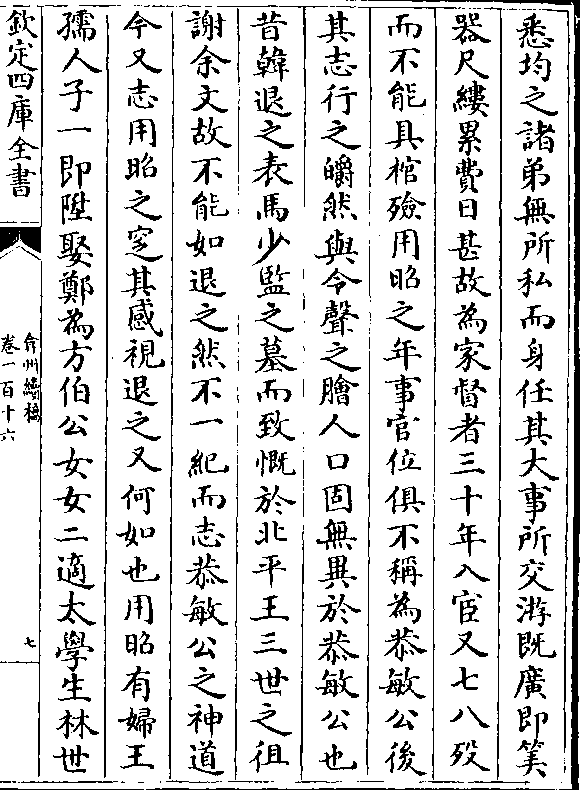 悉均之諸弟無所私而身任其大事所交游既廣即箕
器尺縷累費日甚故為家督者三十年入宦又七八歿
而不能具棺殮用昭之年事官位俱不稱為恭敏公後
其志行之皭然與令聲之膾人口固無異於恭敏公也
昔韓退之表馬少監之墓而致慨於北平王三世之徂
謝余文故不能如退之然不一紀而志恭敏公之神道
今又志用昭之窆其感視退之又何如也用昭有婦王
孺人子一即陞娶鄭為方伯公女女二適太學生林世
欽定四庫全書
弇州續稿
卷一百十六
七